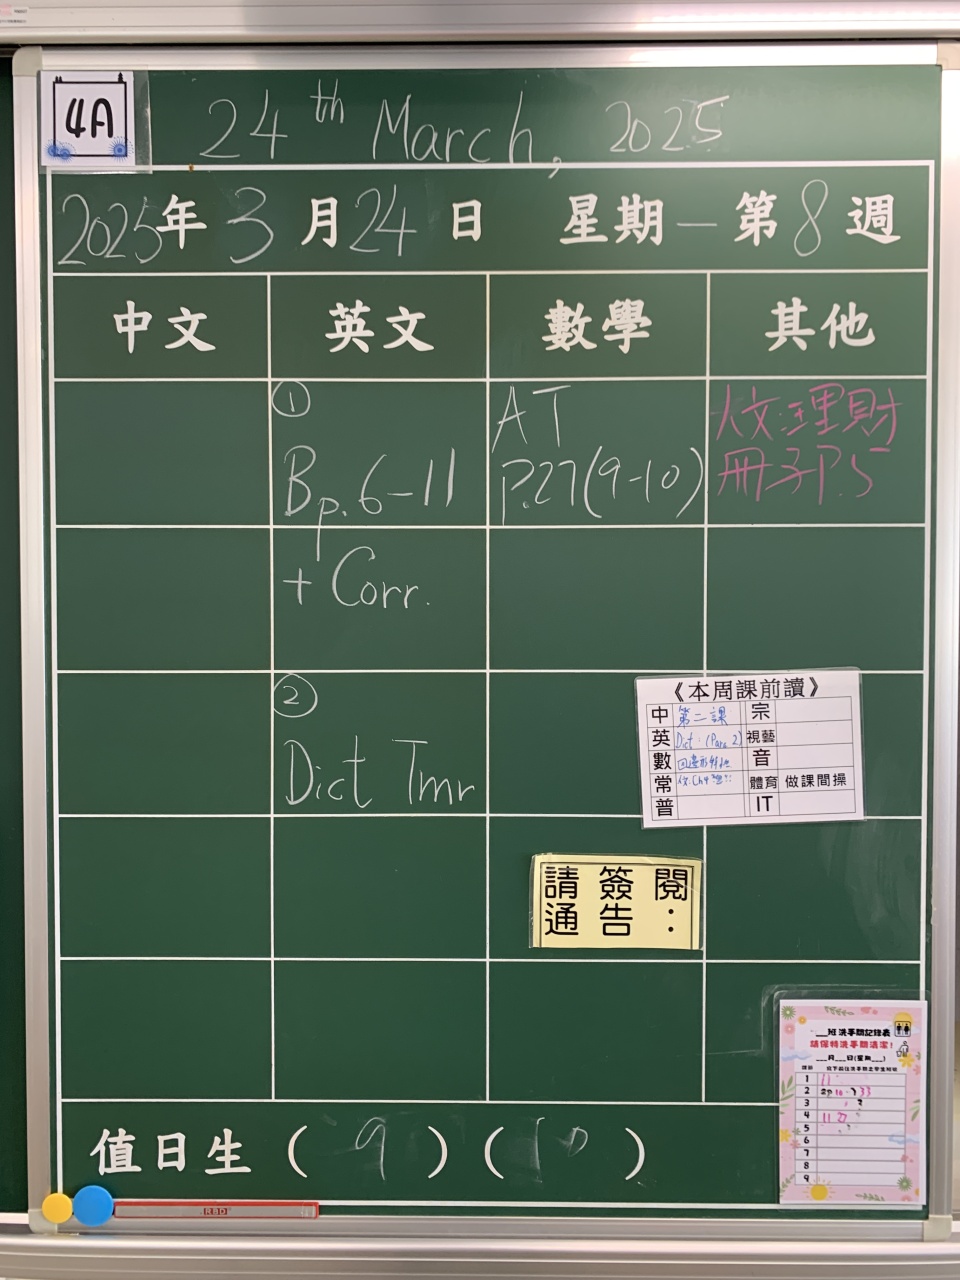 4A
24th March, 2025
2025年3月24日 星期一 第8週
中文 英文 數學 其他
①
Bp.6-11
+ Corr.
②
Dict Tmr
AT
P.27(9-10)
人文:理財
冊子P.5
《本周課前讀》
中 第二課 宗
英 Dict. 視藝
數 音
常 體育 做課間操
普 IT
請簽閱
通告:
班洗手間記錄表
請保持洗手間清潔!
月 日(星期 )
1 11
2
3
4 11
5
6
7
8
9
值日生 ( 9 ) ( 10 )
RBD